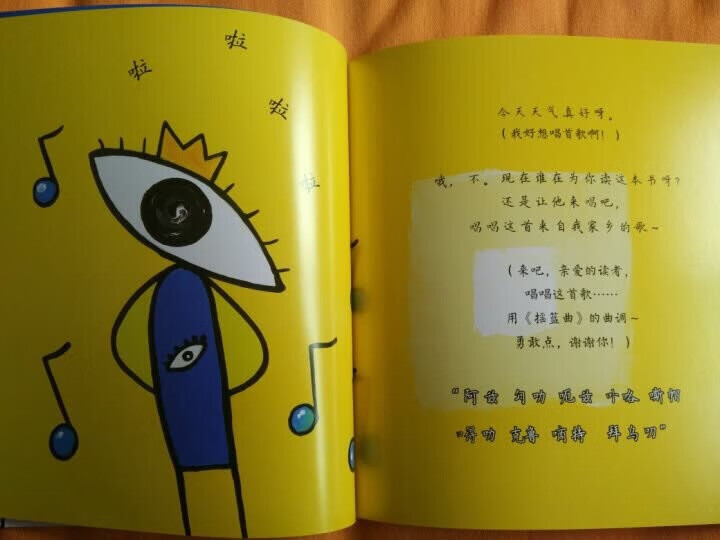 啦
啦
啦
啦
今天天气真好呀。
(我好想唱首歌啊!)
哦,不。现在谁在为你读这本书呀?
还是让他来唱吧,
唱唱这首来自我家乡的歌~
(来吧,亲爱的读者,
唱唱这首歌……
用《摇篮曲》的曲调~
勇敢点,谢谢你!)
“阿兹 呃兹
克鲁 嘀特 拜乌叨”